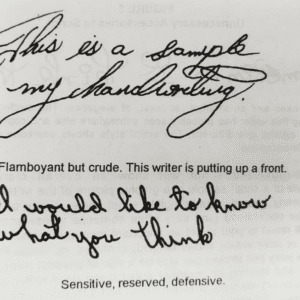 This is a sample
my handwriting
Flamboyant but crude. This writer is putting up a front.
I would like to know
what you think
Sensitive, reserved, defensive.